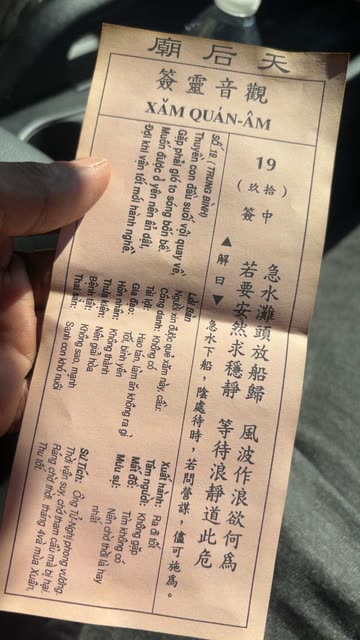 廟后天
簽靈音觀
XĂM QUÁN-ÂM
19
(玖拾)
簽中
急水灘頭放船歸
風波作浪欲何為
若要安然求穩靜
等待浪靜道此危
▲解曰▼
急水下船，陰處待時，若問營謀，儘可施為。
Số 19 (TRUNG BÌNH)
Thuyền con đâu suối vội quay về,
Gặp phải gió to sóng bốn bề.
Muốn được ở yên nên ẩn dật,
Đợi khi vận tốt mới hành nghề.
Lời Bàn
Người xin được quẻ xăm này, cầu:
Công danh: Không có
Tài lợi: Hao tán, làm ăn không ra gì
Gia đạo: Tốt, bình yên
Hôn nhân: Không thành
Thưa kiện: Nên giải hòa
Bệnh tật: Không sao, mạnh
Thai sản: Sanh con khó nuôi
Xuất hành: Ra đi tốt
Tầm người: Không gặp
Mất đồ: Tìm không có
Mưu sự: Nên chờ thời là hay nhất
Sự Tích: Ông Tử Nghị phong vương.
Thời vận suy, chớ tham cầu mà bị hại.
Ráng chờ thời, tháng 4 và mùa Xuân,
Thu tốt